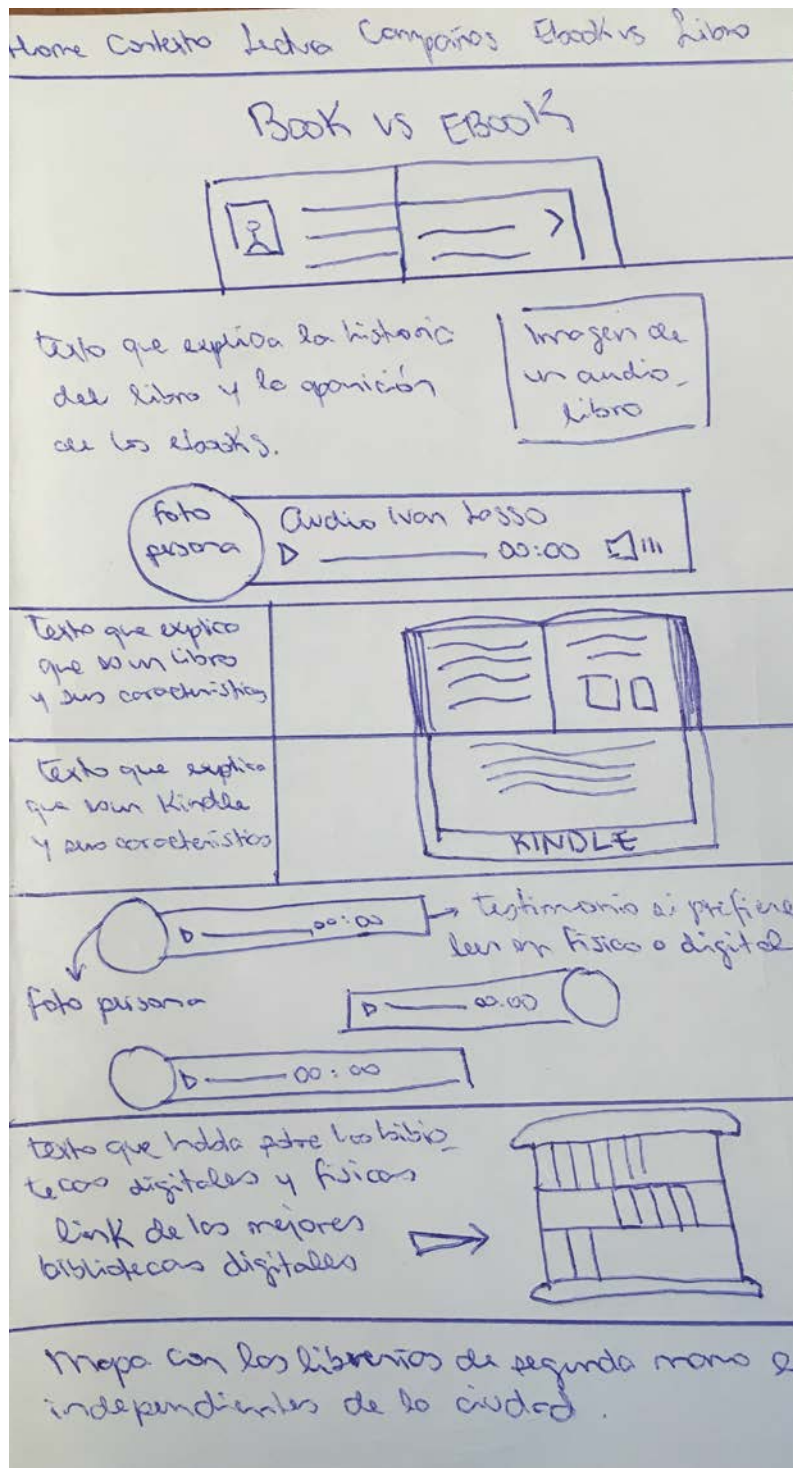 Home Contexto Lectura Campañas Ebook vs Libro
Book vs EBook
texto que explica la historia
del libro y la aparición
de los ebooks.
Imagen de
un audio_
libro
foto
persona
Audio Ivan Lasso
00:00
texto que explica
que es un libro
y sus características
texto que explica
que es un Kindle
y sus características
KINDLE
00:00
testimonio si prefiere
leer en físico o digital
foto persona
00:00
00:00
texto que habla sobre las biblio_
tecas digitales y físicas
link de las mejores
bibliotecas digitales
Mapa con las librerías de segunda mano e
independientes de la ciudad.